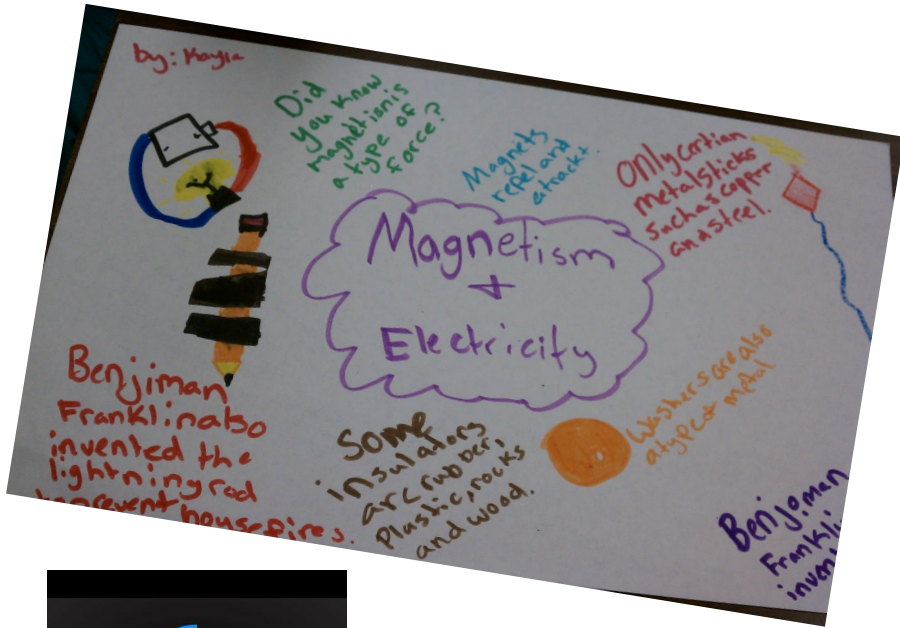 by: Kayla
Did
you know
magnetism is
a type of
force?
Magnets
repel and
atrackt.
Only certian
metal sticks
such as copper
and steel.
Magnetism
+
Electricity
Benjiman
Franklin also
invented the
lightning rod
to prevent house fires.
Some
insulators
are rubber,
Plastic, rocks
and wood.
Washers are also
a type of metal
Benjoman
Frankli
inven